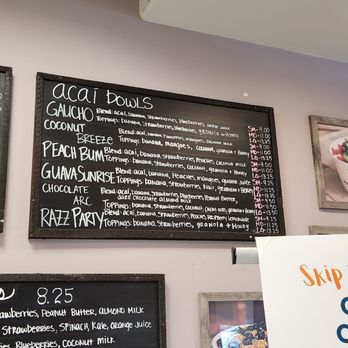 acai Bowls
GAUCHO Blend: acai, banana, strawberries, blueberries, apple juice SM-9.00
Toppings: banana, strawberries, blueberries, granola + Honey MD-11.00
COCONUT
BREEZE Toppings: banana, mangoes, coconut, granola + Honey
PEACH BUM Blend: acai, banana, strawberries, Peaches, coconut milk
Toppings: banana, strawberries, Peaches, granola + Honey
GUAVA SUNRISE Blend: acai, banana, Peaches, mangoes, guava Juice
Toppings: banana, strawberries, kiwi, granola + Honey
CHOCOLATE Blend: acai, banana, strawberries, blueberries, Peanut Butter,
ARC dark chocolate almond milk
Toppings: banana, strawberries, coconut, cacao nibs, granola + Honey
RAZZ PARTY Blend: acai, banana, strawberries, Peaches, raspberry Lemonade
Toppings: banana, strawberries, granola + Honey
8.25
awberries, Peanut Butter, ALMOND MILK
Strawberries, SPINACH, Kale, orange Juice
ries, Blueberries, coconut milk
Skip